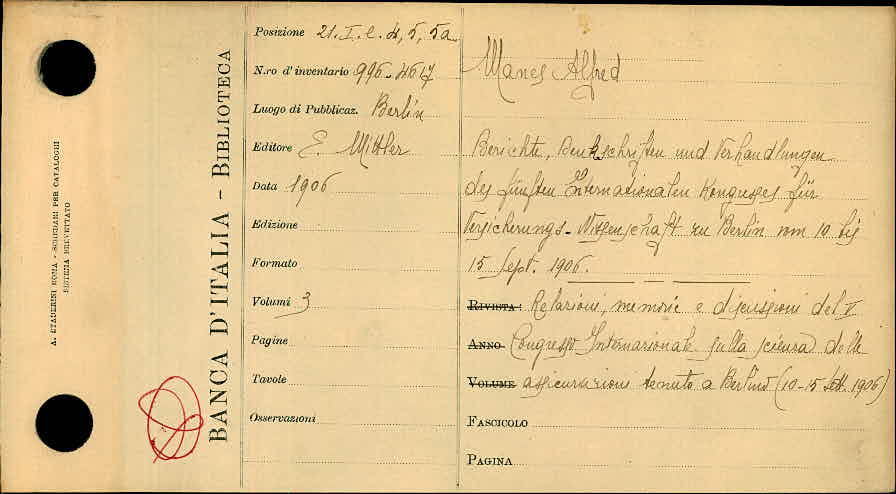 A. STADERINI ROMA - SCHEDARI PER CATALOGHI
SISTEMA BREVETTATO
BANCA D'ITALIA - BIBLIOTECA
Posizione 21. I. e. 4, 5, 5a
N.ro d'inventario 996-4617
Luogo di Pubblicaz. Berlin
Editore E. Mittler
Data 1906
Edizione
Formato
Volumi 3
Pagine
Tavole
Osservazioni
Manes Alfred
Berichte, Denkschriften und Verhandlungen
des fünften Internationalen Kongresses für
Versicherungs-Wissenschaft zu Berlin vom 10 bis
15 Sept. 1906.
RIVISTA: Relazioni, memorie e discussioni del V
ANNO Congresso Internazionale sulla scienza delle
VOLUME assicurazioni tenuto a Berlino (10-15 Sett. 1906)
FASCICOLO
PAGINA